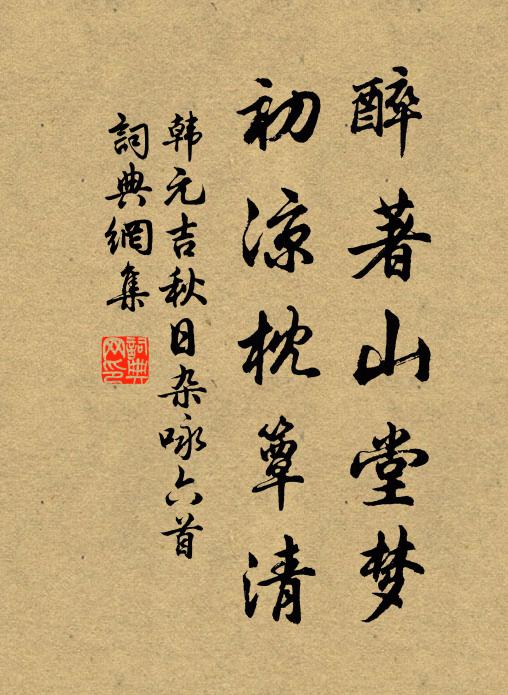 醉著山堂梦
初凉枕簟清
韩元吉秋日杂咏六首
詞典網集
詞典网印